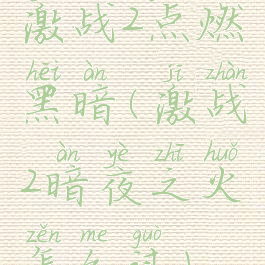 激战2点燃
hēi àn jī zhàn
黑暗(激战
àn yè zhī huǒ
2暗夜之火
zěn me guò
怎么过)